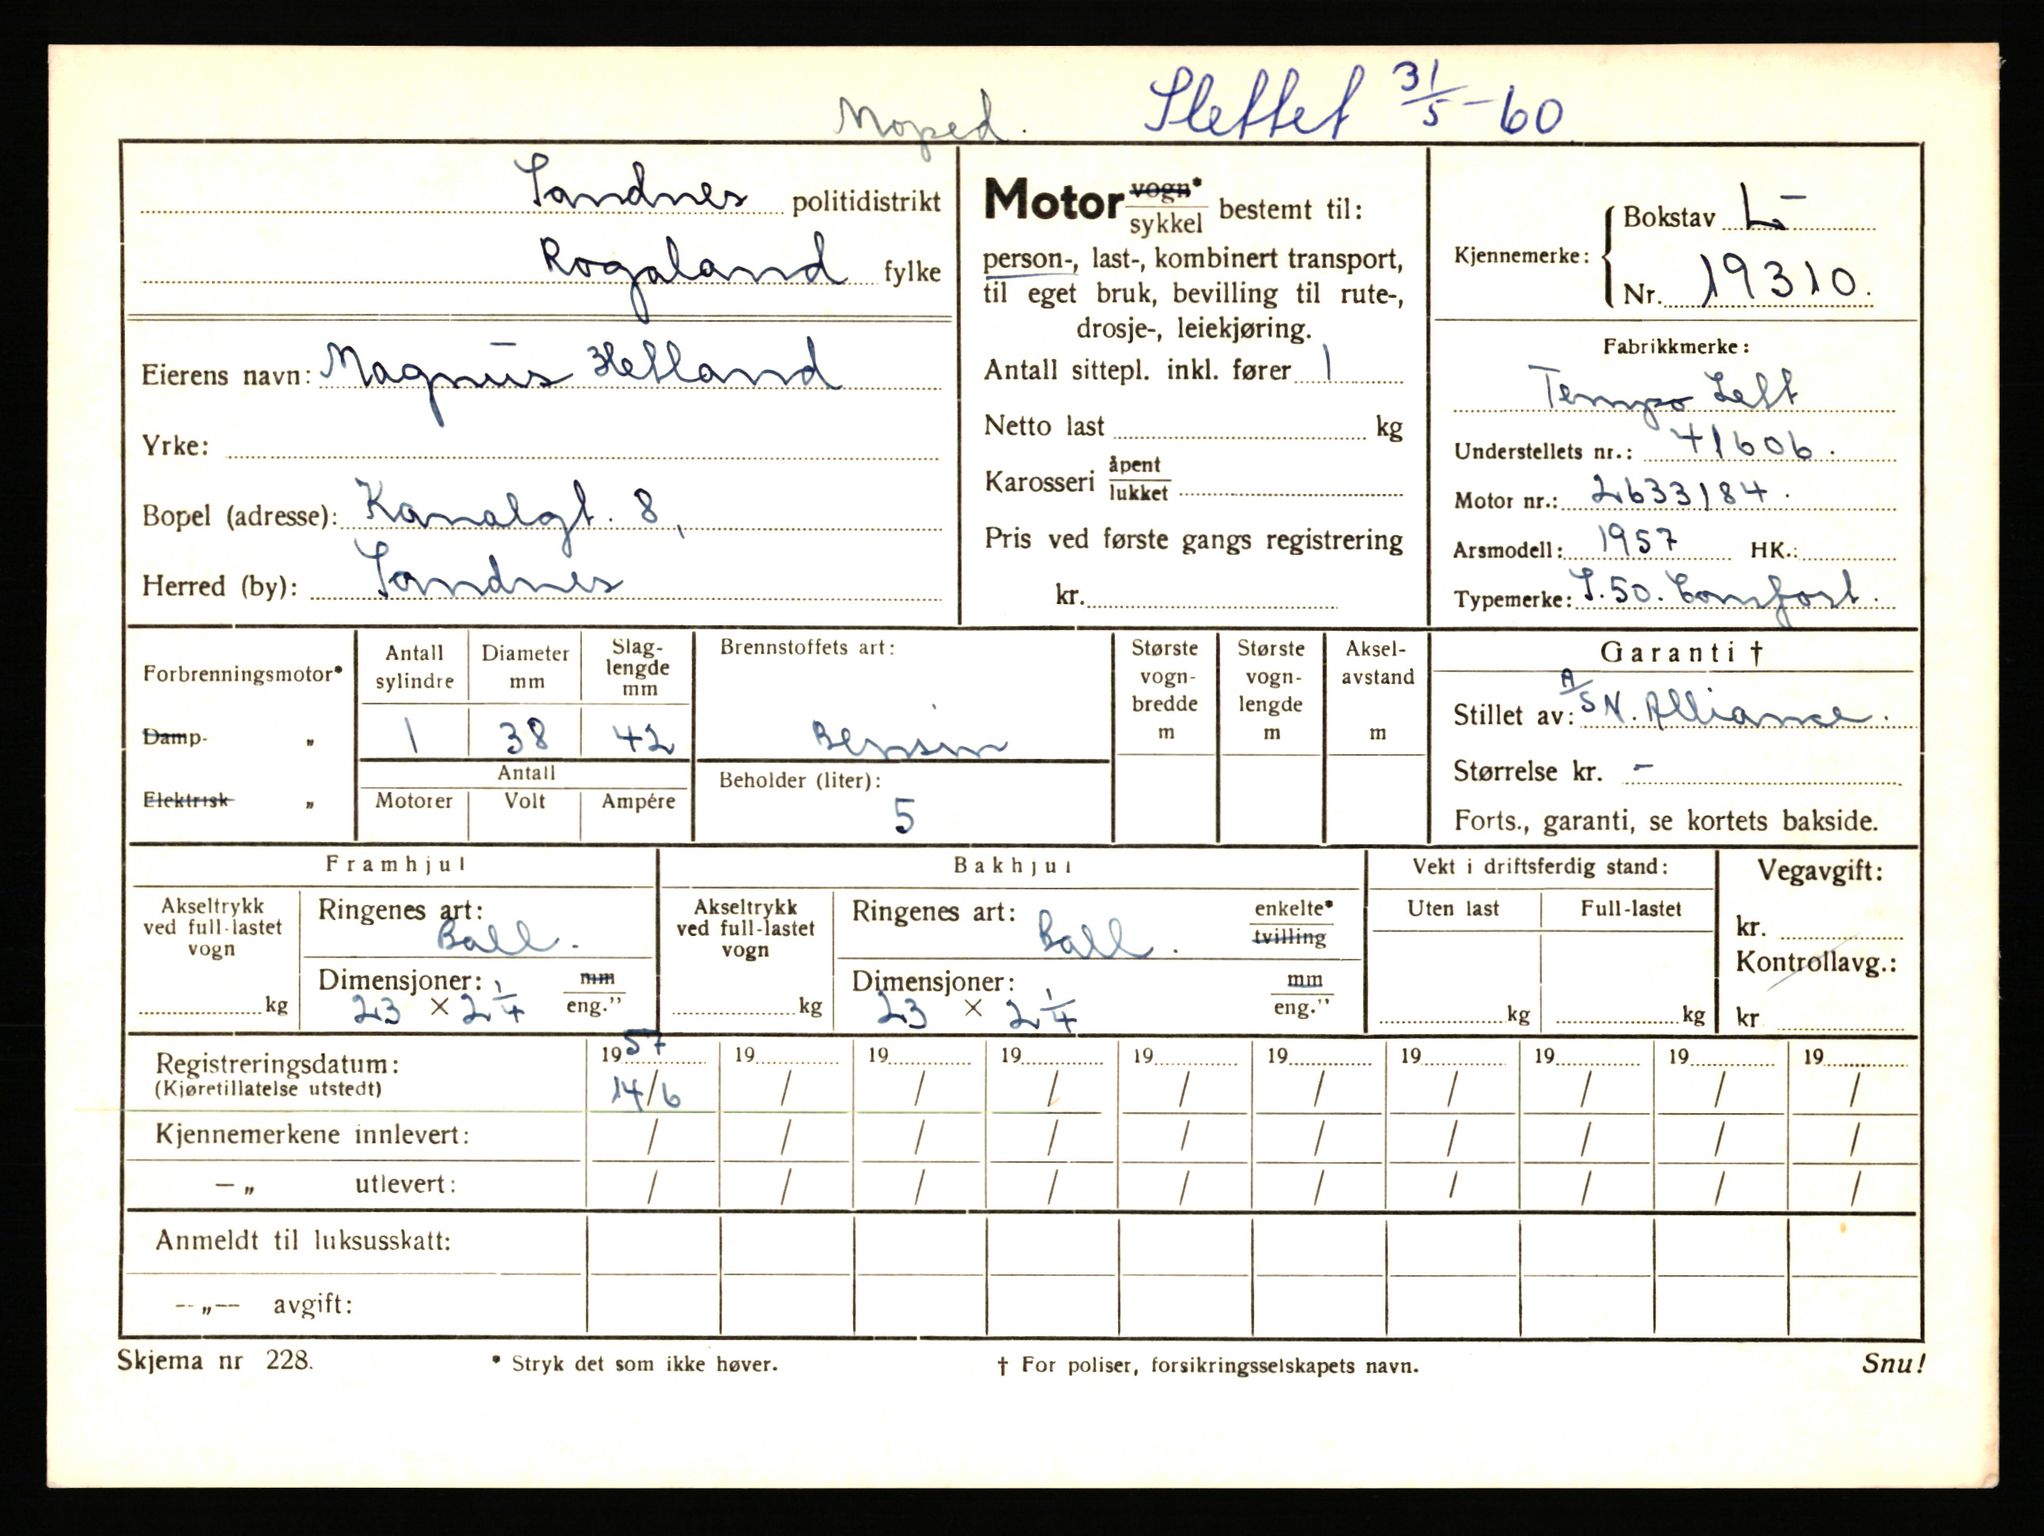 Moped. Slettet 31/5-60
Sandnes politidistrikt
Rogaland fylke
Eierens navn: Magnus Hetland
Yrke:
Bopel (adresse): Kanalgt. 8,
Herred (by): Sandnes
Motor vogn*/sykkel bestemt til:
person-, last-, kombinert transport,
til eget bruk, bevilling til rute-,
drosje-, leiekjøring.
Antall sittepl. inkl. fører 1
Netto last kg
Karosseri åpent/lukket
Pris ved første gangs registrering
kr.
Kjennemerke: Bokstav L-
Nr. 19310.
Fabrikkmerke:
Tempo Lett
Understellets nr.: 41606.
Motor nr.: 2633184.
Arsmodell: 1957 HK.:
Typemerke: S.50. Comfort.
Forbrenningsmotor*
Damp- „
Elektrisk „
Antall sylindre Diameter mm Slag-lengde mm
1 38 42
Antall
Motorer Volt Ampére
Brennstoffets art:
Bensin
Beholder (liter):
5
Største vogn-bredde m
Største vogn-lengde m
Aksel-avstand m
Garanti †
Stillet av: A/S N. Alliance.
Størrelse kr. -
Forts., garanti, se kortets bakside.
Framhjul
Akseltrykk
ved full-lastet
vogn
kg
Ringenes art:
Ball.
Dimensjoner: mm/eng."
23 x 2 1/4
Bakhjul
Akseltrykk
ved full-lastet
vogn
kg
Ringenes art: enkelte*/tvilling
Ball.
Dimensjoner: mm/eng."
23 x 2 1/4
Vekt i driftsferdig stand:
Uten last Full-lastet
kg kg
Vegavgift:
kr.
Kontrollavg.:
kr
Registreringsdatum: 1957 19 19 19 19 19 19 19 19 19
(Kjøretillatelse utstedt) 14/6 / / / / / / / / /
Kjennemerkene innlevert: / / / / / / / / / /
— „ utlevert: / / / / / / / / / /
Anmeldt til luksusskatt:
—„— avgift:
Skjema nr 228. * Stryk det som ikke høver. † For poliser, forsikringsselskapets navn. Snu!